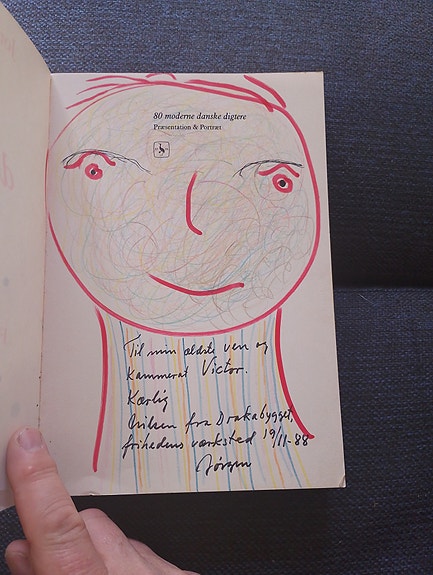 80 moderne danske digtere
Præsentation & Portræt
Til min ældste ven og
kammerat Victor.
Kærlig
hilsen fra Drakabygget,
frihedens værksted 19/11-88
Jørgen